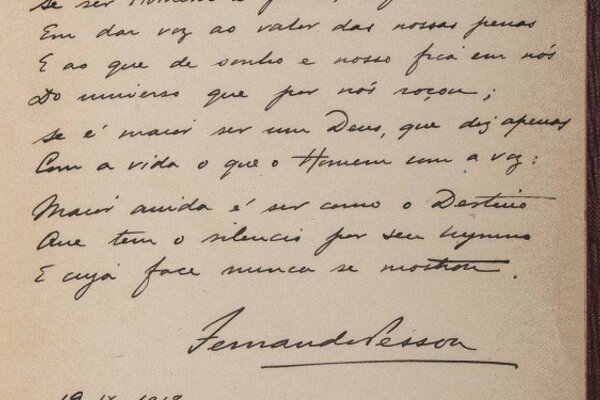 Se ser Homem é
Em dar voz ao valor das nossas penas
E ao que de sonho e nosso fica em nós
Do universo que por nós roçou;
Se é maior ser um Deus, que diz apenas
Com a vida o que o Homem com a voz:
Maior ainda é ser como o Destino
Que tem o silencio por seu hymno
E cuja face nunca se mostrou.
Fernando Pessoa